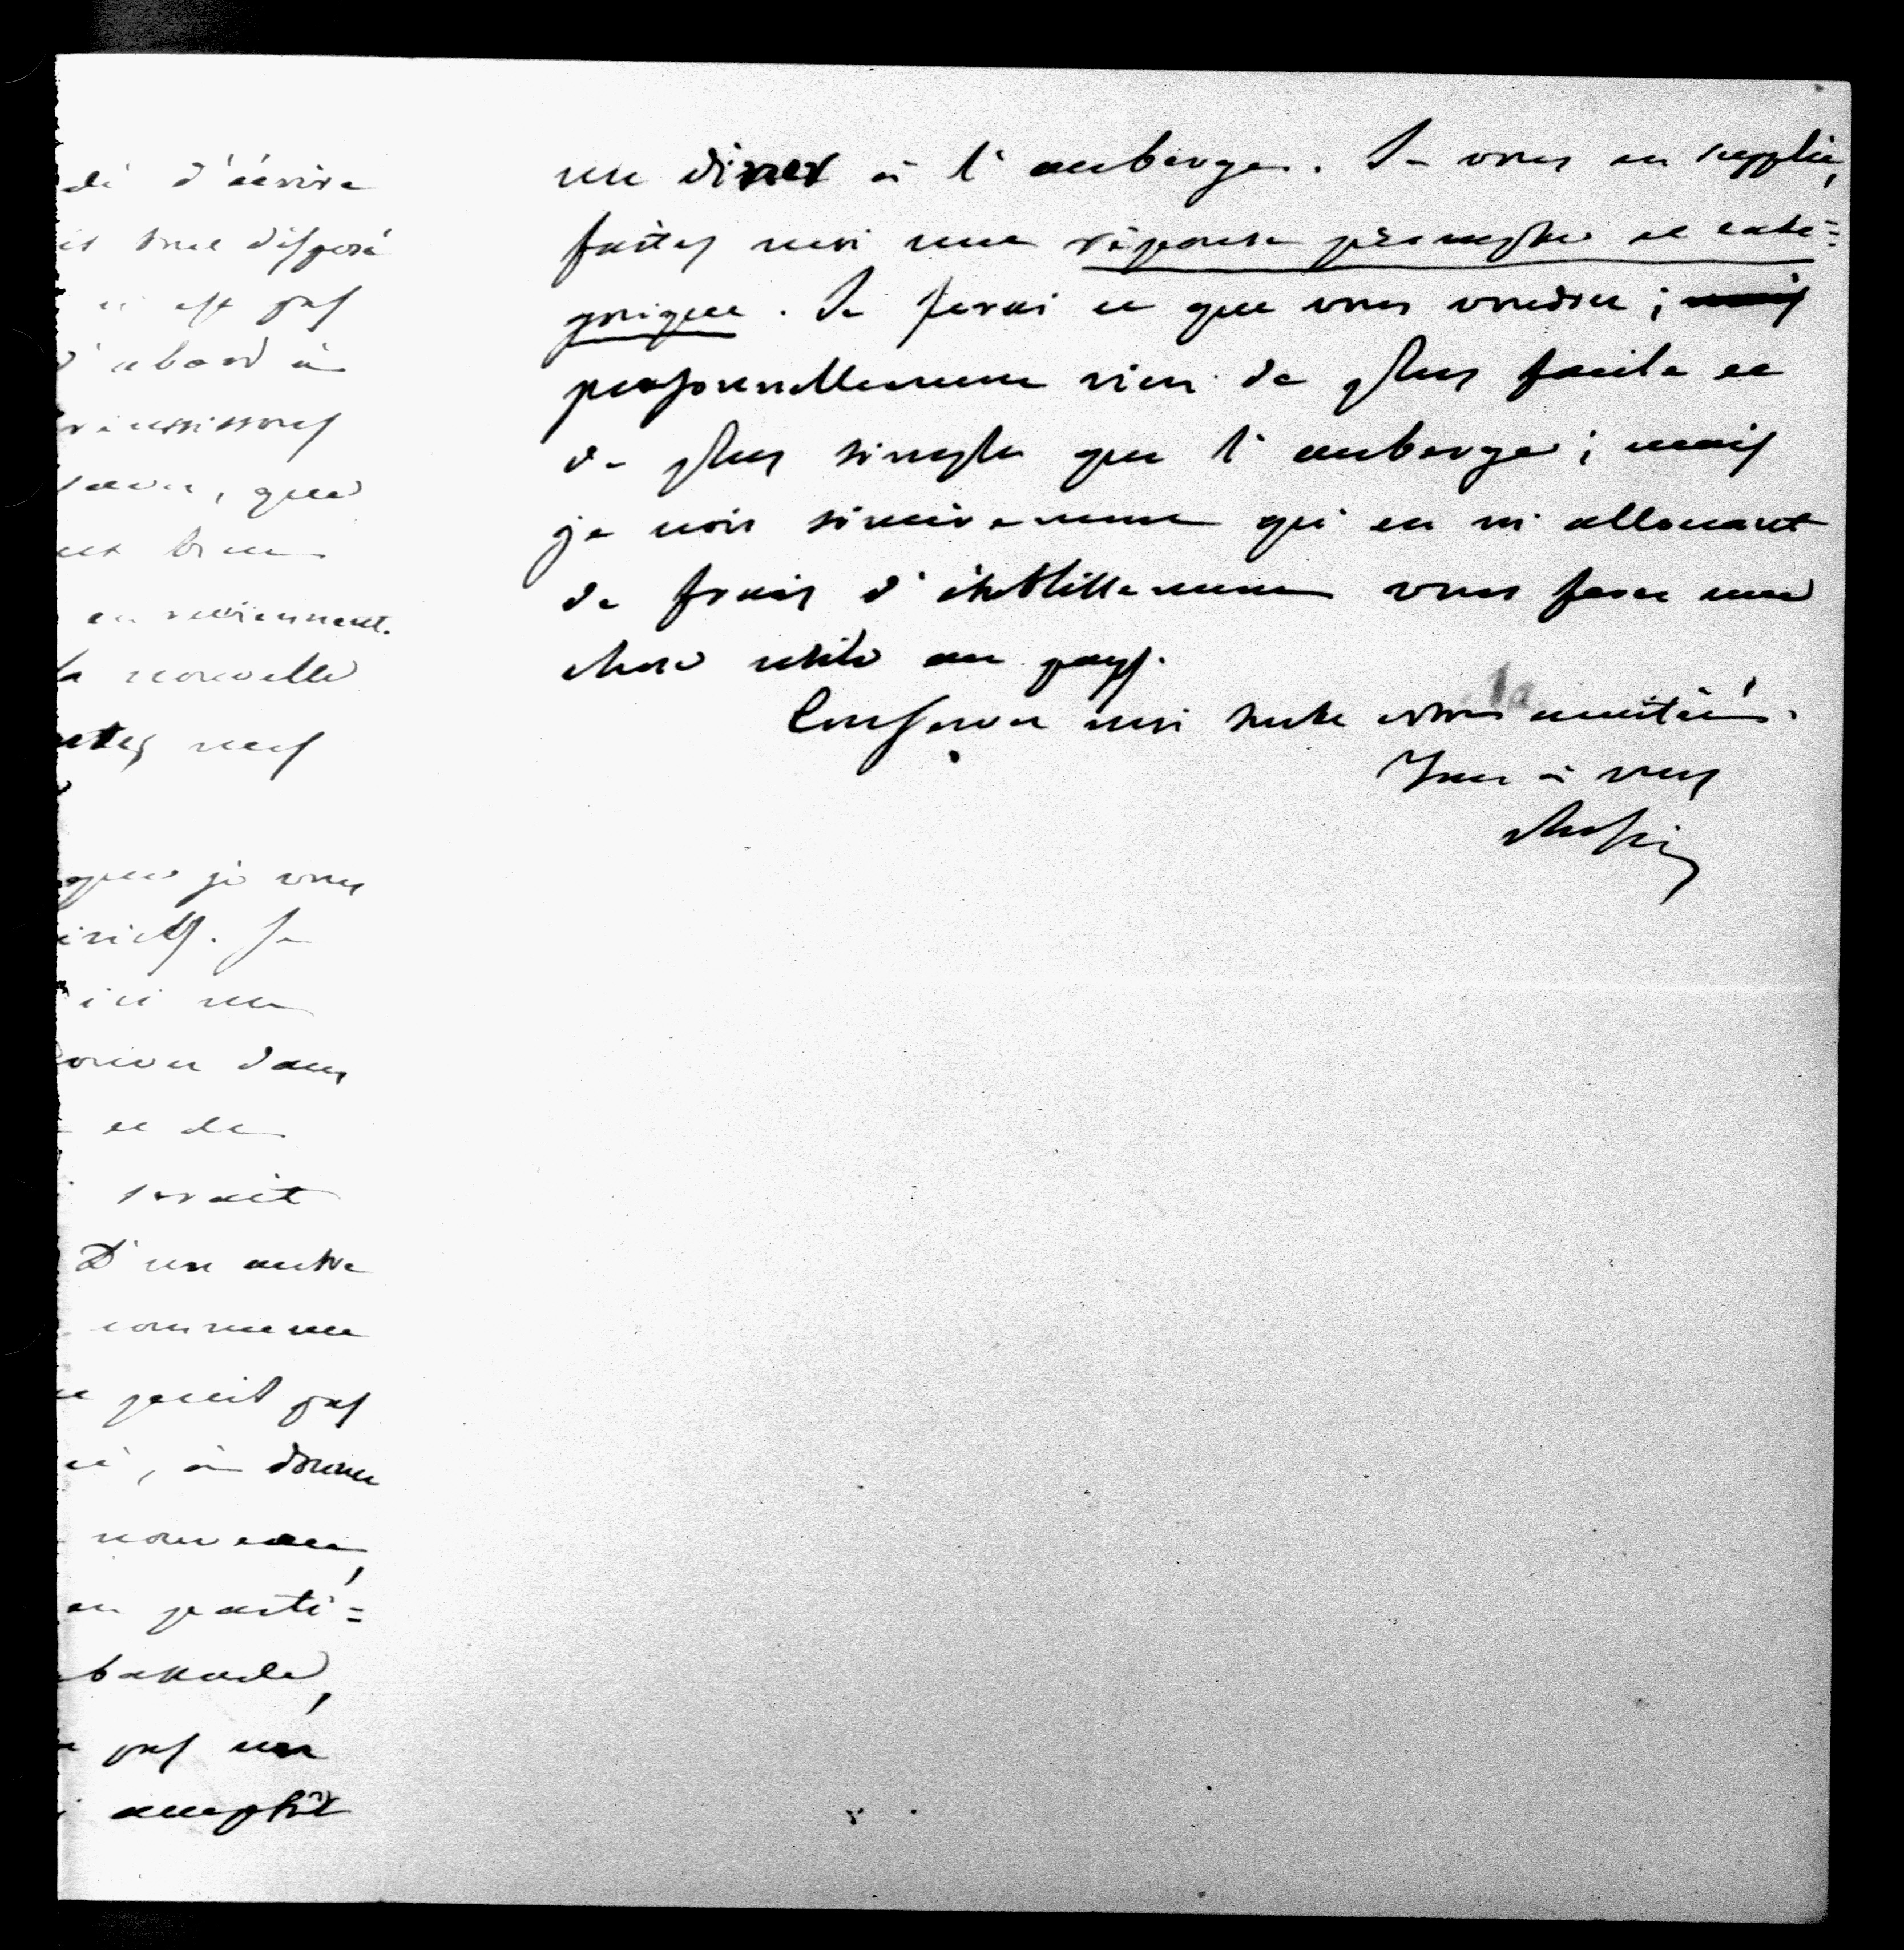 d'écrire
disposé
n'est pas
d'abord à
réussissons
, que
bien
en reviennent.
la nouvelle
nous
que je vous
. Je
ici un
dans
et de
serait
D'un autre
comment
pas
, à donner
nouveau,
en parti=
pas une
acceptât
un diner à l'auberge. Je vous en supplie,
faites moi une réponse prompte et caté=
gorique. Je ferai ce que vous voudrez; mais
personnellement rien de plus facile et
de plus simple que l'auberge; mais
je crois sincèrement qu'en m'allouant
de frais d'établissement vous ferez une
chose utile au pays.
Conservez moi toute votre amitié.
Tout à vous